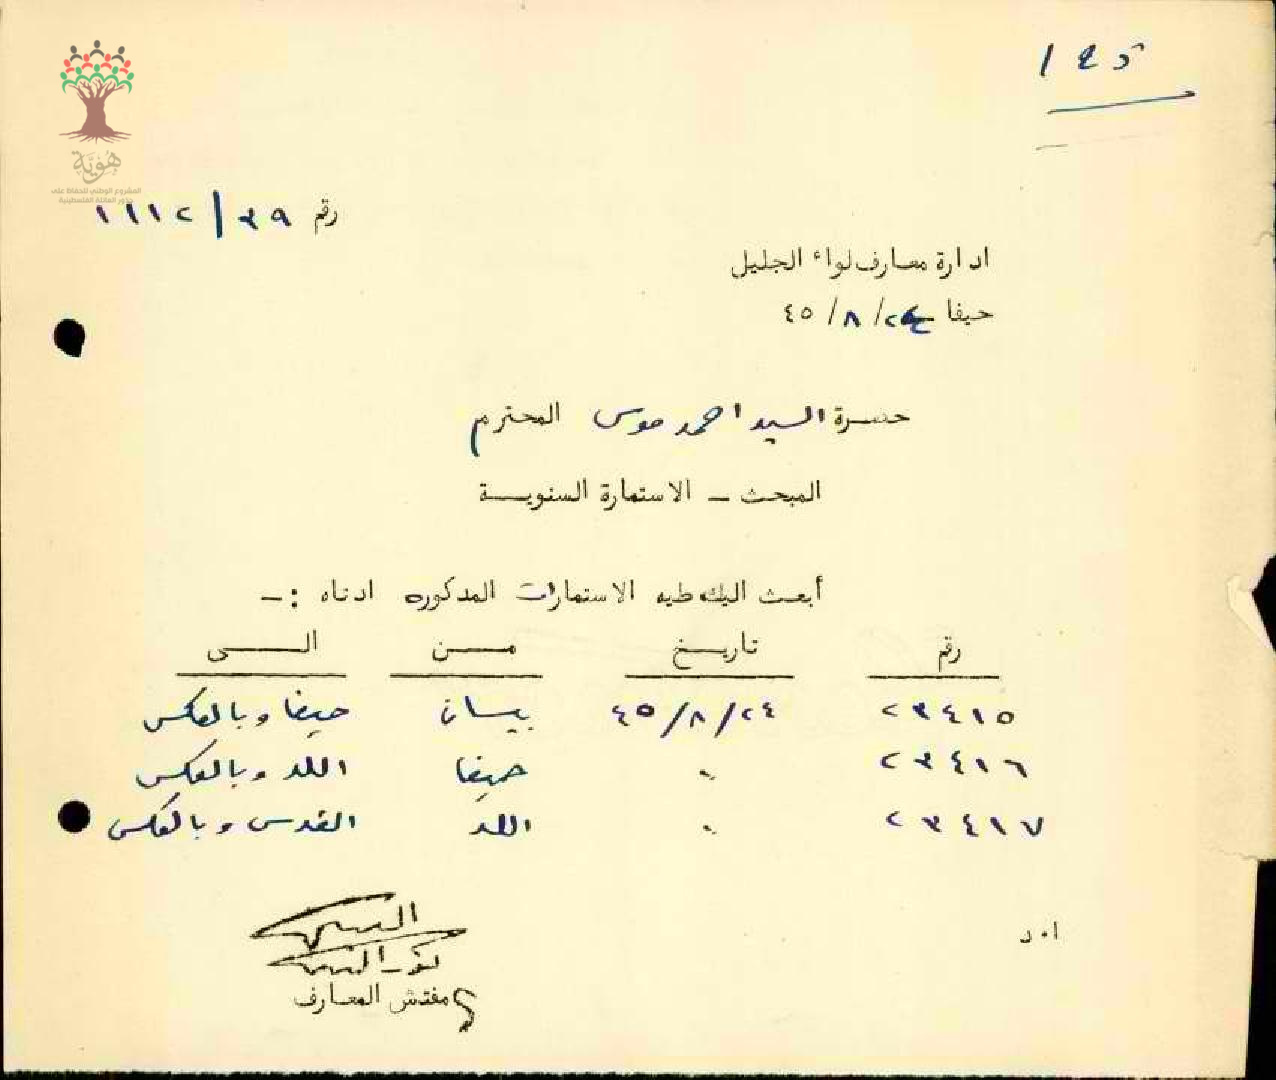 ١٤٥
هُوِيَّة
المشروع الوطني للحفاظ على
جذور العائلة الفلسطينية
رقم ٣٩/١١١٢
ادارة معارف لواء الجليل
حيفا ٢٤/٨/٤٥
حضرة السيد احمد موسى المحترم
المبحث - الاستمارة السنوية
أبعث اليك طيه الاستمارات المذكوره ادناه :-
رقم تاريخ من الى
٢٣٤١٥ ٢٤/٨/٤٥ بيسان حيفا وبالعكس
٢٣٤١٦ " حيفا اللد وبالعكس
٢٣٤١٧ " اللد القدس وبالعكس
ا٠د
مفتش المعارف